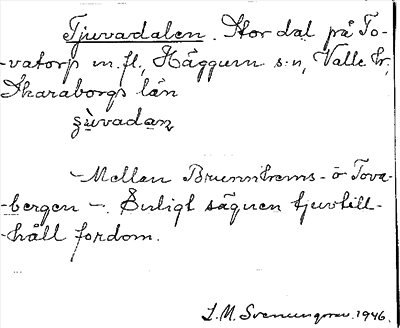 Tjuvadalen. Stor dal på To-
-vatorp m. fl., Häggum s:n, Valle hr,
Skaraborgs län
ʂùvadaɳ
-Mellan Brunnhems- o Tova-
-bergen -. Enligt sägnen tjuvtill-
-håll fordom.
L. M. Svenungsson. 1946.